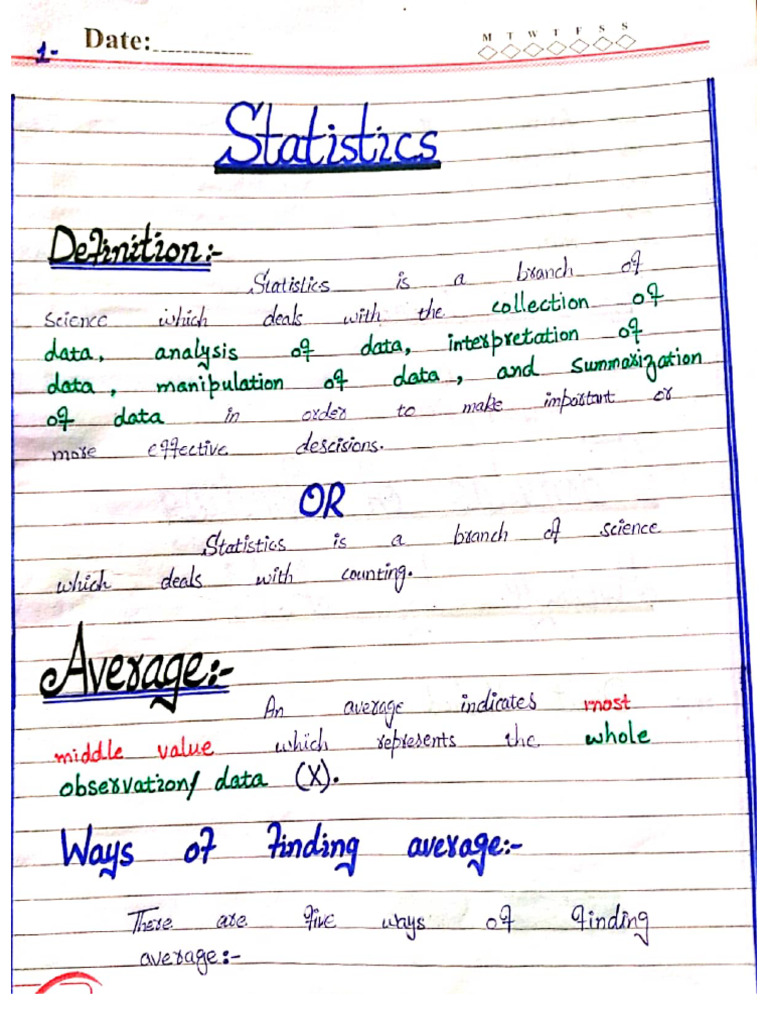 1-
Date:
M T W T F S S
Statistics
Definition:-
Statistics is a branch of
science which deals with the collection of
data, analysis of data, interpretation of
data, manipulation of data, and summarization
of data in order to make important or
more effective descisions.
OR
Statistics is a branch of science
which deals with counting.
Average:-
An average indicates most
middle value which represents the whole
observation/ data (X).
Ways of finding average:-
There are five ways of finding
average:-